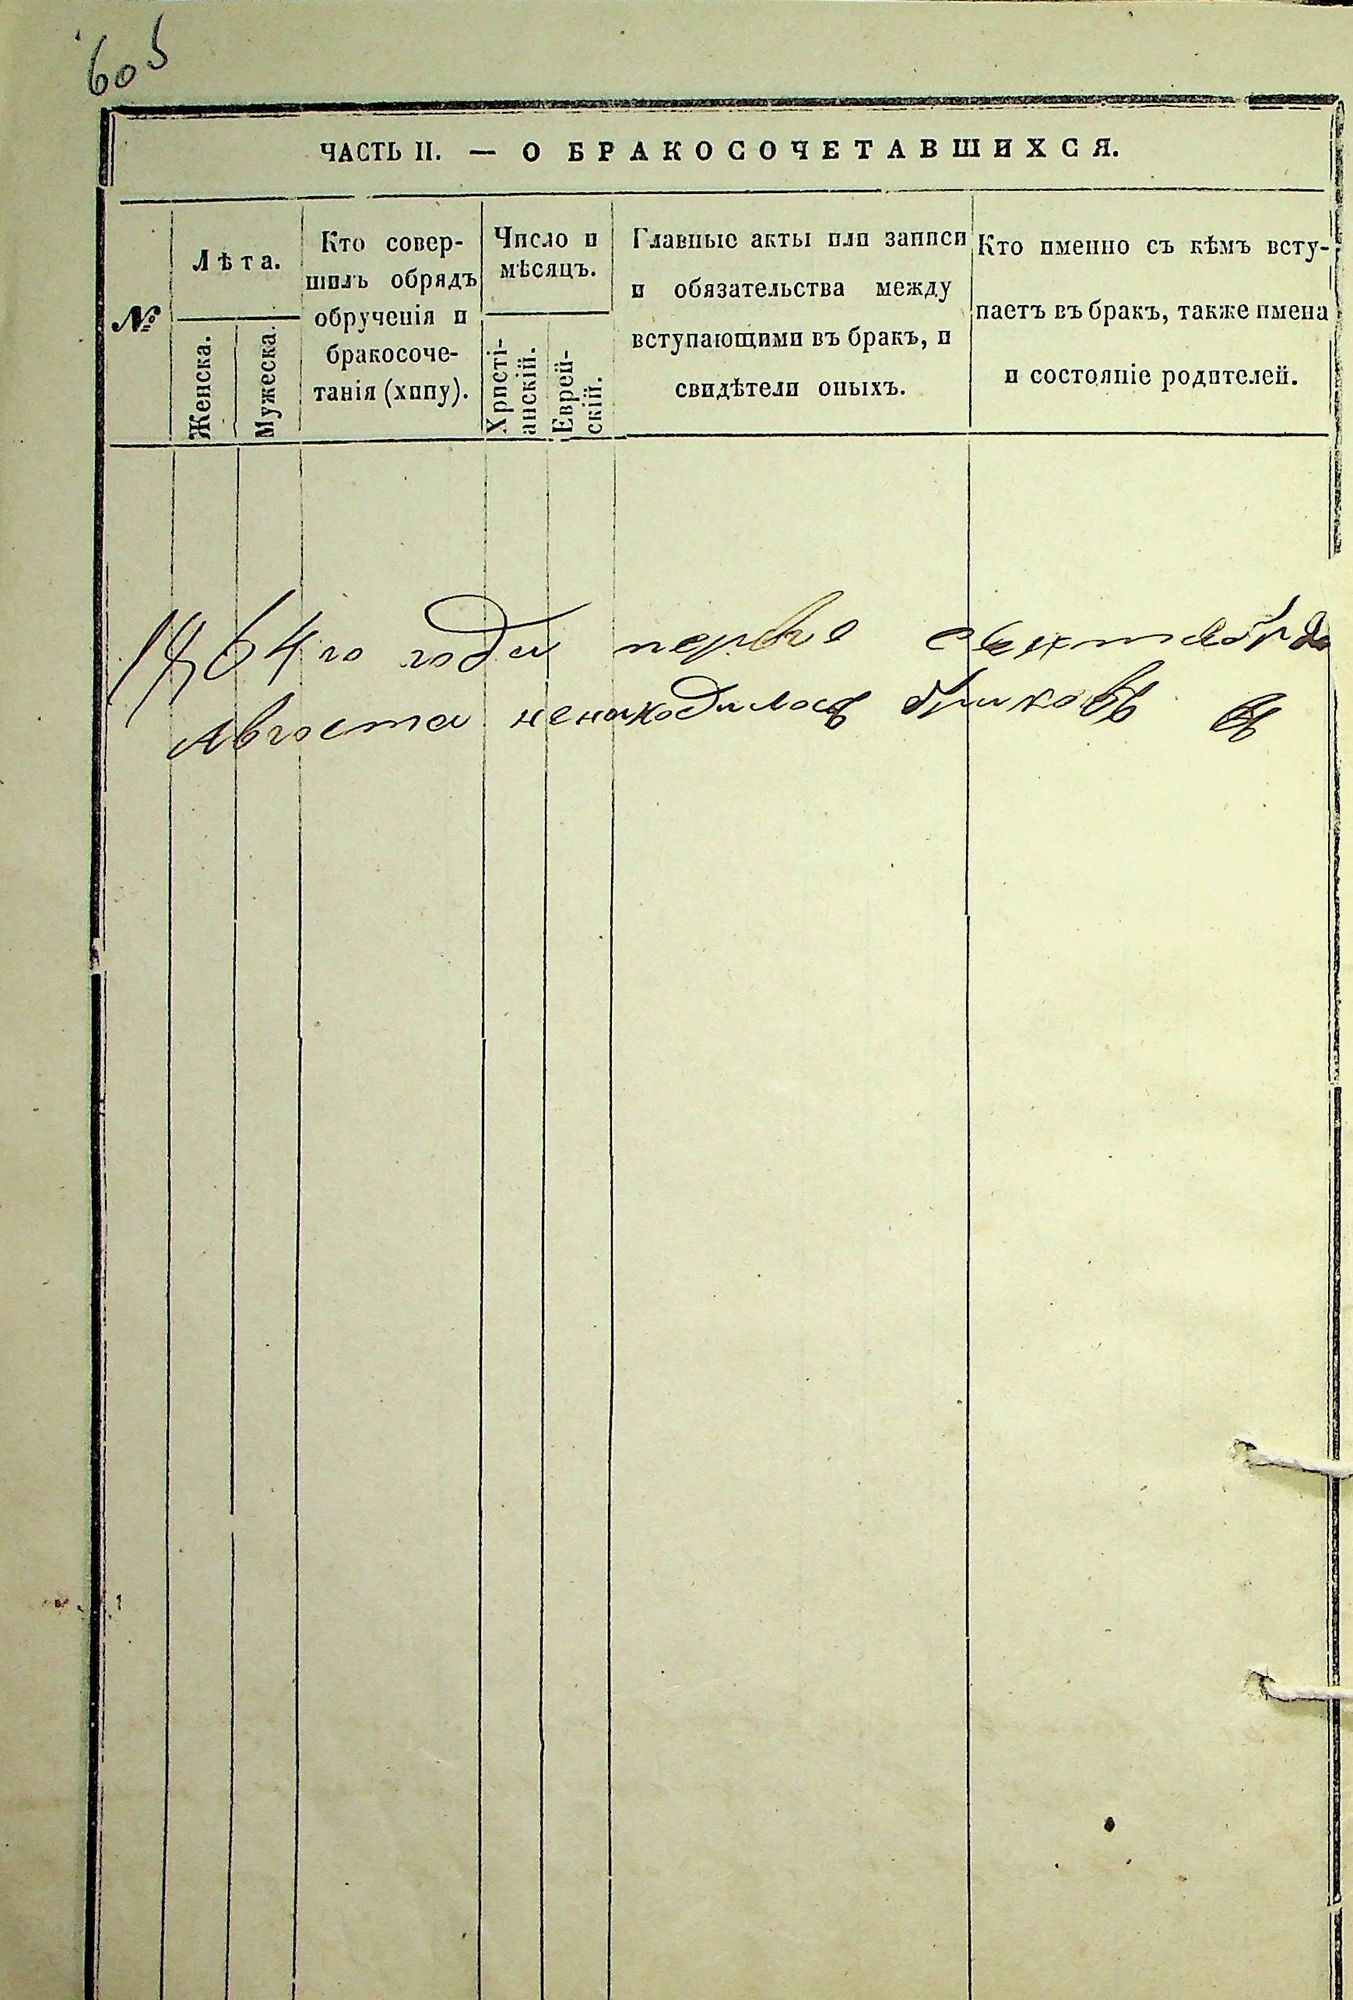 605
ЧАСТЬ II. — О БРАКОСОЧЕТАВШИХСЯ.
№
Лѣта.
Женска.
Мужеска.
Кто совер-
шилъ обрядъ
обрученія и
бракосоче-
танія (хипу).
Число и
мѣсяцъ.
Христі-
анскій.
Еврей-
скій.
Главные акты или записи
и обязательства между
вступающими въ бракъ, и
свидѣтели оныхъ.
Кто именно съ кѣмъ всту-
паетъ въ бракъ, также имена
и состояніе родителей.
1864го года перваго сентября
Августа ненаходилось браковъ